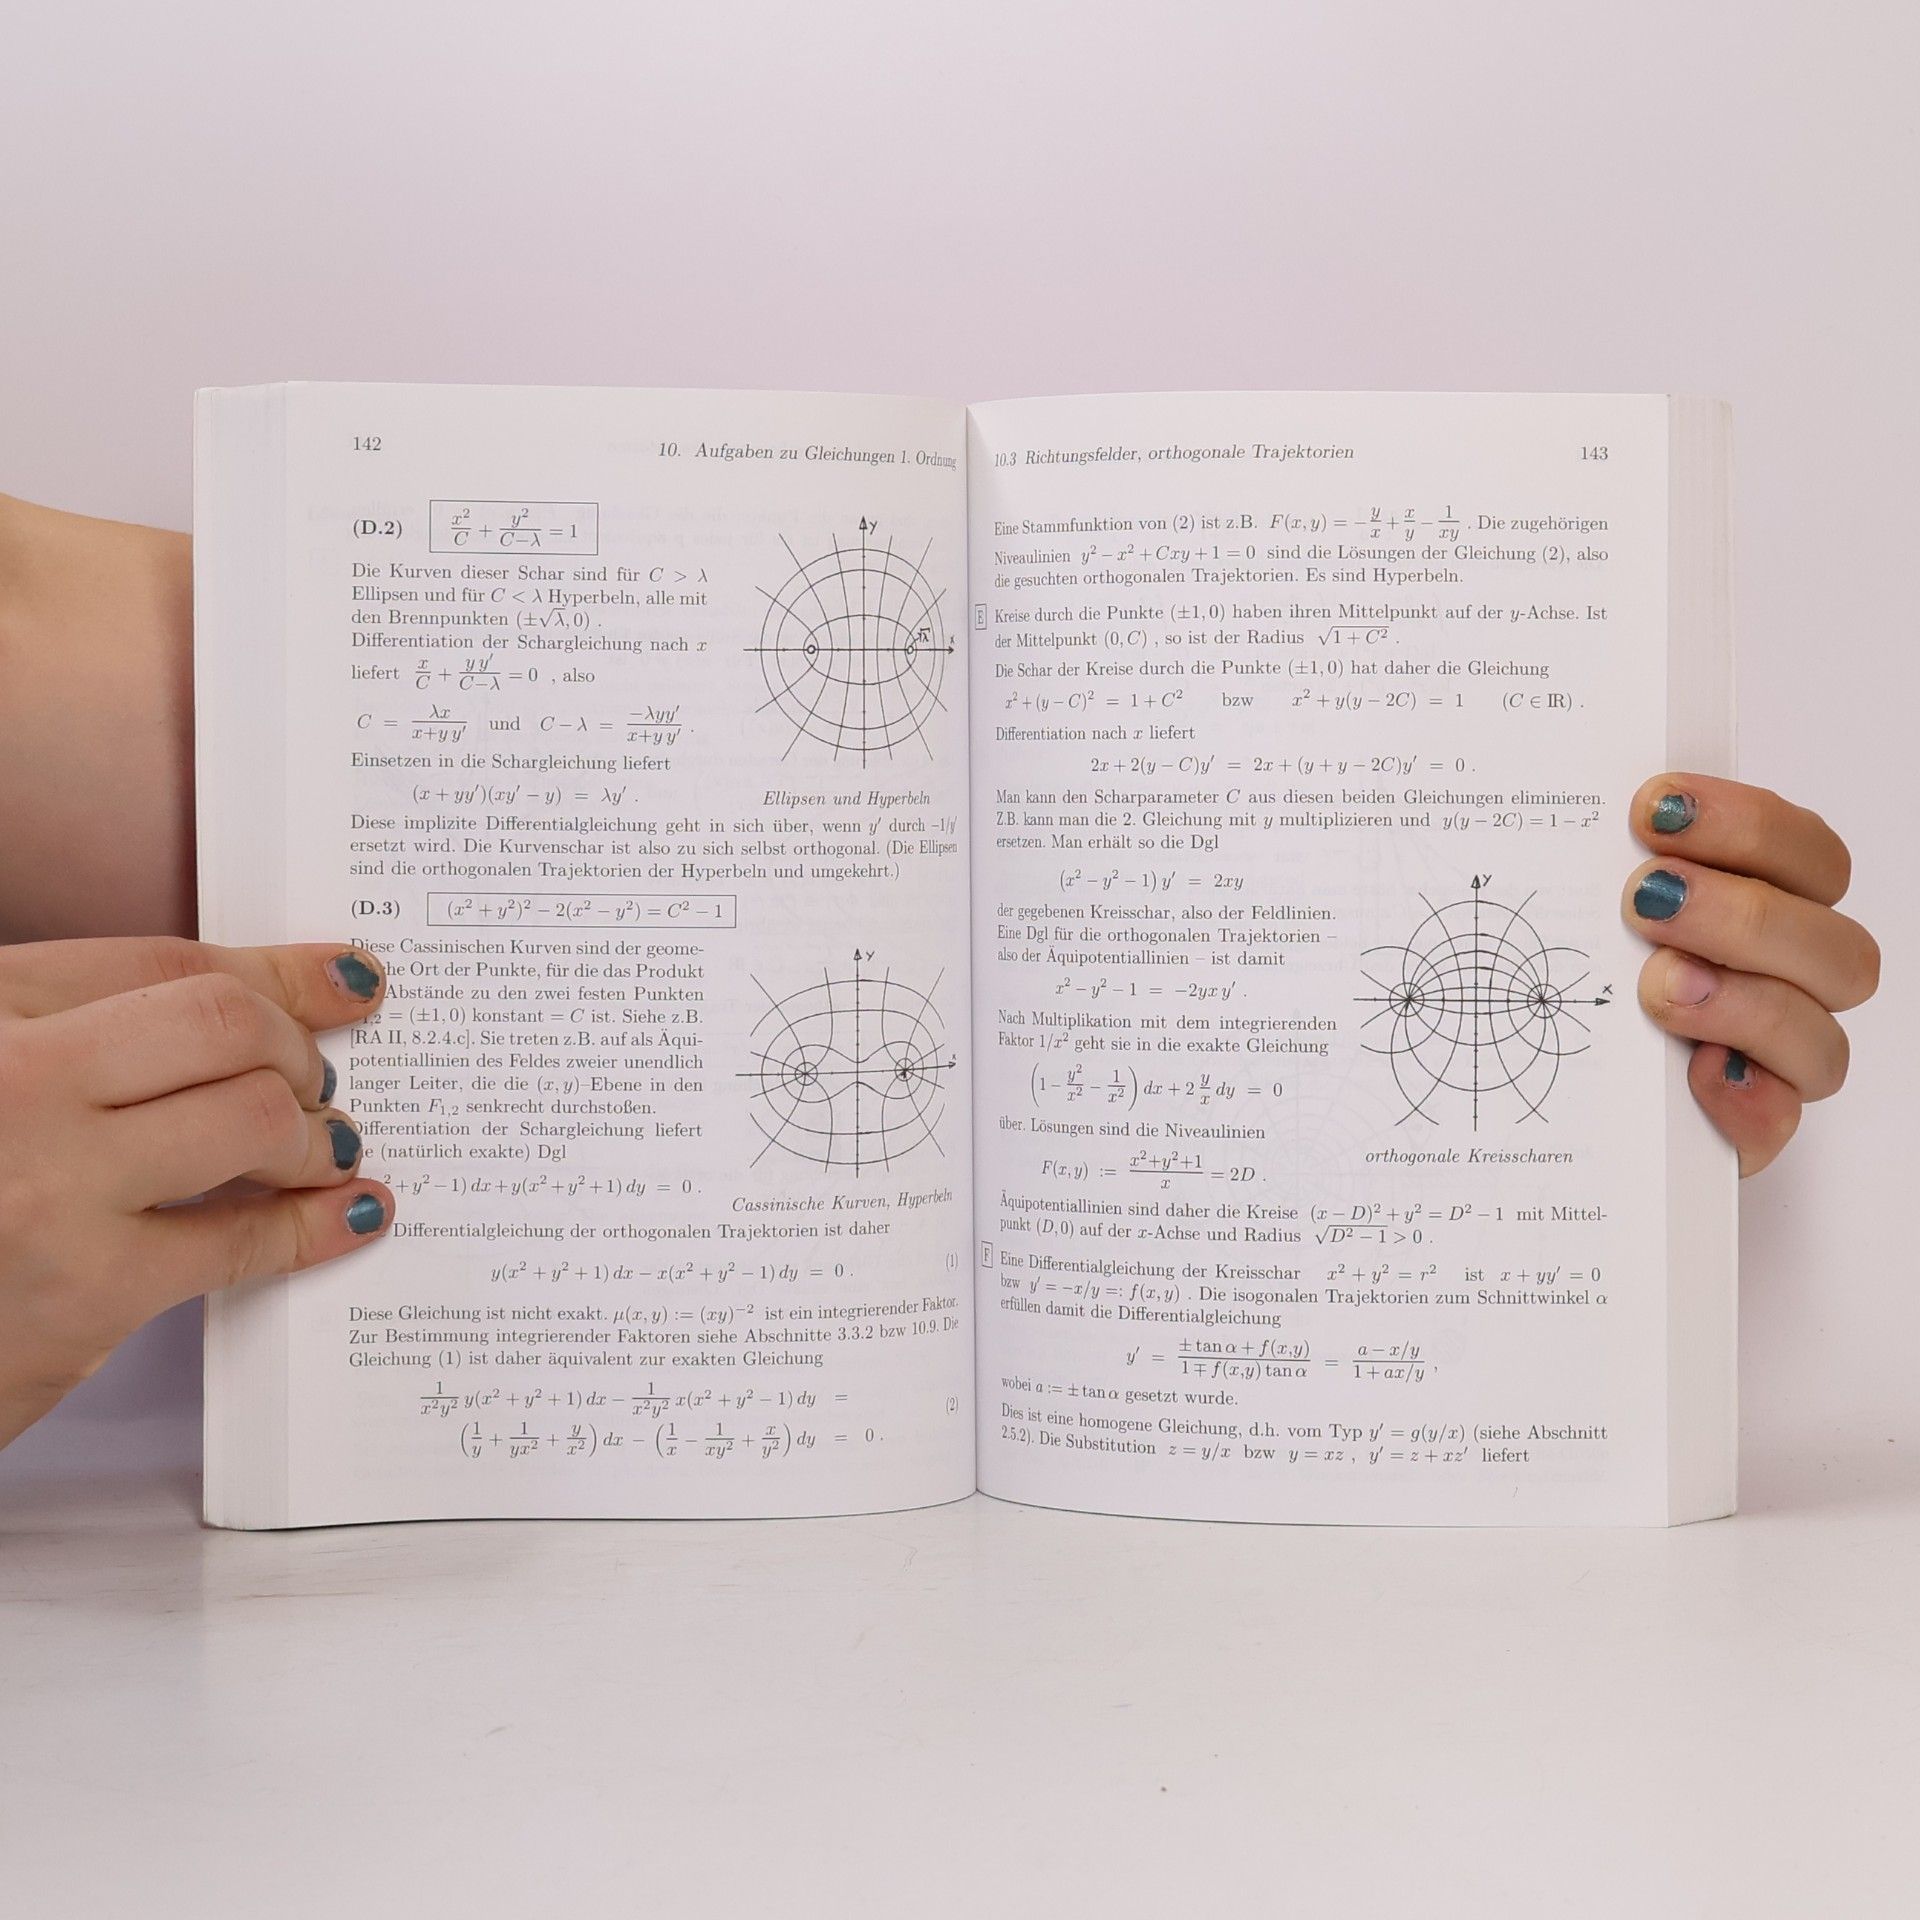 142
10. Aufgaben zu Gleichungen 1. Ordnung
(D.2) x²/C + y²/(C−λ) = 1
Die Kurven dieser Schar sind für C > λ
Ellipsen und für C < λ Hyperbeln, alle mit
den Brennpunkten (±√λ, 0) .
Differentiation der Schargleichung nach x
liefert x/C + y y′/(C−λ) = 0 , also
C = λx/(x+y y′) und C−λ = −λyy′/(x+y y′) .
Einsetzen in die Schargleichung liefert
(x + yy′)(xy′ − y) = λy′ .
y
x
√λ
Ellipsen und Hyperbeln
Diese implizite Differentialgleichung geht in sich über, wenn y′ durch −1/y′
ersetzt wird. Die Kurvenschar ist also zu sich selbst orthogonal. (Die Ellipsen
sind die orthogonalen Trajektorien der Hyperbeln und umgekehrt.)
(D.3) (x² + y²)² − 2(x² − y²) = C² − 1
Diese Cassinischen Kurven sind der geome-
he Ort der Punkte, für die das Produkt
Abstände zu den zwei festen Punkten
1,2 = (±1, 0) konstant = C ist. Siehe z.B.
[RA II, 8.2.4.c]. Sie treten z.B. auf als Äqui-
potentiallinien des Feldes zweier unendlich
langer Leiter, die die (x, y)–Ebene in den
Punkten F₁,₂ senkrecht durchstoßen.
Differentiation der Schargleichung liefert
e (natürlich exakte) Dgl
² + y² − 1) dx + y(x² + y² + 1) dy = 0 .
y
x
Cassinische Kurven, Hyperbeln
Differentialgleichung der orthogonalen Trajektorien ist daher
y(x² + y² + 1) dx − x(x² + y² − 1) dy = 0 . (1)
Diese Gleichung ist nicht exakt. μ(x, y) := (xy)⁻² ist ein integrierender Faktor.
Zur Bestimmung integrierender Faktoren siehe Abschnitte 3.3.2 bzw 10.9. Die
Gleichung (1) ist daher äquivalent zur exakten Gleichung
1/(x²y²) y(x² + y² + 1) dx − 1/(x²y²) x(x² + y² − 1) dy =
(2)
(1/y + 1/(yx²) + y/x²) dx − (1/x − 1/(xy²) + x/y²) dy = 0 .
10.3 Richtungsfelder, orthogonale Trajektorien
143
Eine Stammfunktion von (2) ist z.B. F(x, y) = −y/x + x/y − 1/(xy) . Die zugehörigen
Niveaulinien y² − x² + Cxy + 1 = 0 sind die Lösungen der Gleichung (2), also
die gesuchten orthogonalen Trajektorien. Es sind Hyperbeln.
E Kreise durch die Punkte (±1, 0) haben ihren Mittelpunkt auf der y-Achse. Ist
der Mittelpunkt (0, C) , so ist der Radius √(1 + C²) .
Die Schar der Kreise durch die Punkte (±1, 0) hat daher die Gleichung
x² + (y − C)² = 1 + C² bzw x² + y(y − 2C) = 1 (C ∈ ℝ) .
Differentiation nach x liefert
2x + 2(y − C)y′ = 2x + (y + y − 2C)y′ = 0 .
Man kann den Scharparameter C aus diesen beiden Gleichungen eliminieren.
Z.B. kann man die 2. Gleichung mit y multiplizieren und y(y − 2C) = 1 − x²
ersetzen. Man erhält so die Dgl
(x² − y² − 1) y′ = 2xy
der gegebenen Kreisschar, also der Feldlinien.
Eine Dgl für die orthogonalen Trajektorien –
also der Äquipotentiallinien – ist damit
x² − y² − 1 = −2yx y′ .
Nach Multiplikation mit dem integrierenden
Faktor 1/x² geht sie in die exakte Gleichung
(1 − y²/x² − 1/x²) dx + 2 y/x dy = 0
über. Lösungen sind die Niveaulinien
F(x, y) := (x²+y²+1)/x = 2D .
y
x
orthogonale Kreisscharen
Äquipotentiallinien sind daher die Kreise (x − D)² + y² = D² − 1 mit Mittel-
punkt (D, 0) auf der x-Achse und Radius √(D² − 1) > 0 .
F Eine Differentialgleichung der Kreisschar x² + y² = r² ist x + yy′ = 0
bzw y′ = −x/y =: f(x, y) . Die isogonalen Trajektorien zum Schnittwinkel α
erfüllen damit die Differentialgleichung
y′ = (± tan α + f(x,y))/(1 ∓ f(x,y) tan α) = (a − x/y)/(1 + ax/y) ,
wobei a := ± tan α gesetzt wurde.
Dies ist eine homogene Gleichung, d.h. vom Typ y′ = g(y/x) (siehe Abschnitt
2.5.2). Die Substitution z = y/x bzw y = xz , y′ = z + xz′ liefert